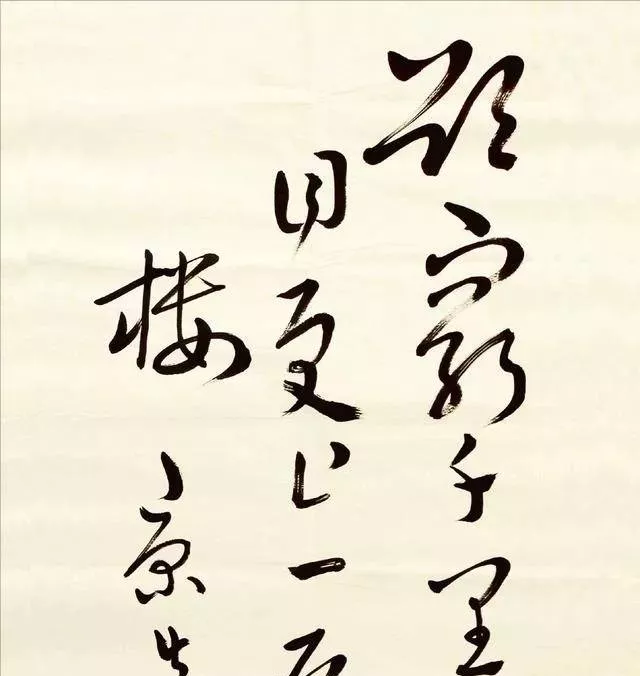 欲窮千里
目更上一
楼